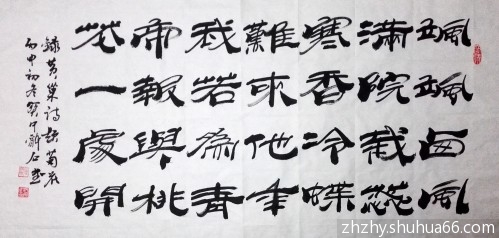 颯颯西風
滿院栽蕊
寒香冷蝶
難來他年
我若為青
帝報與桃
花一處開
錄黃巢詩題菊花
丙申初冬
zhzhy.shuhua66.com